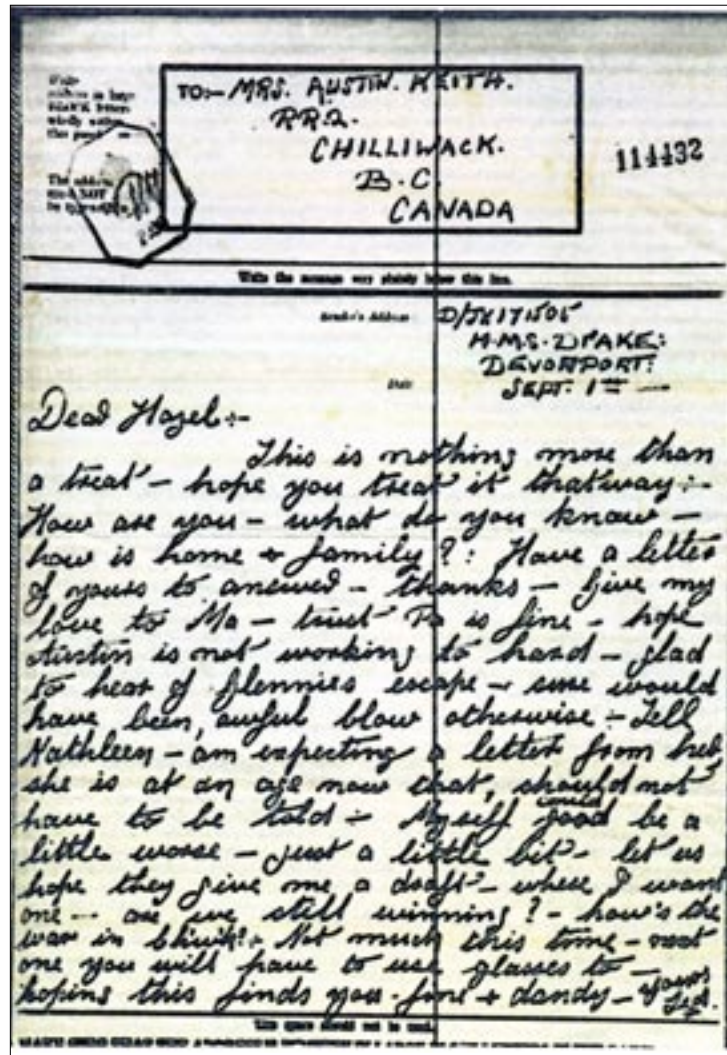 TO:- MRS. AUSTIN. KEITH.
RR2.
CHILLIWACK.
B.C.
CANADA
114432
Write the message very plainly below this line.
Sender's Address
H.M.S. DRAKE:
DEVONPORT:
Date SEPT. 1
Dear Hazel:-
This is nothing more than
a treat - hope you treat it that way:-
How are you - what do you know -
how is home + family?: Have a letter
of yours to answer - thanks - Give my
love to Ma - trust Pa is fine - hope
Austin is not working to hard - glad
to hear of Glennies escape - sure would
have been, awful blow otherwise - Tell
Kathleen - am expecting a letter from her,
she is at an age now that, should not
have to be told - Myself could be a
little worse - just a little bit - let us
hope they give me a draft - where I want
one - are we still winning? - how's the
war in - Not much this time - next
one you will have to use glasses to -
hoping this finds you fine + dandy - yours
Ted.
This space should not be used.